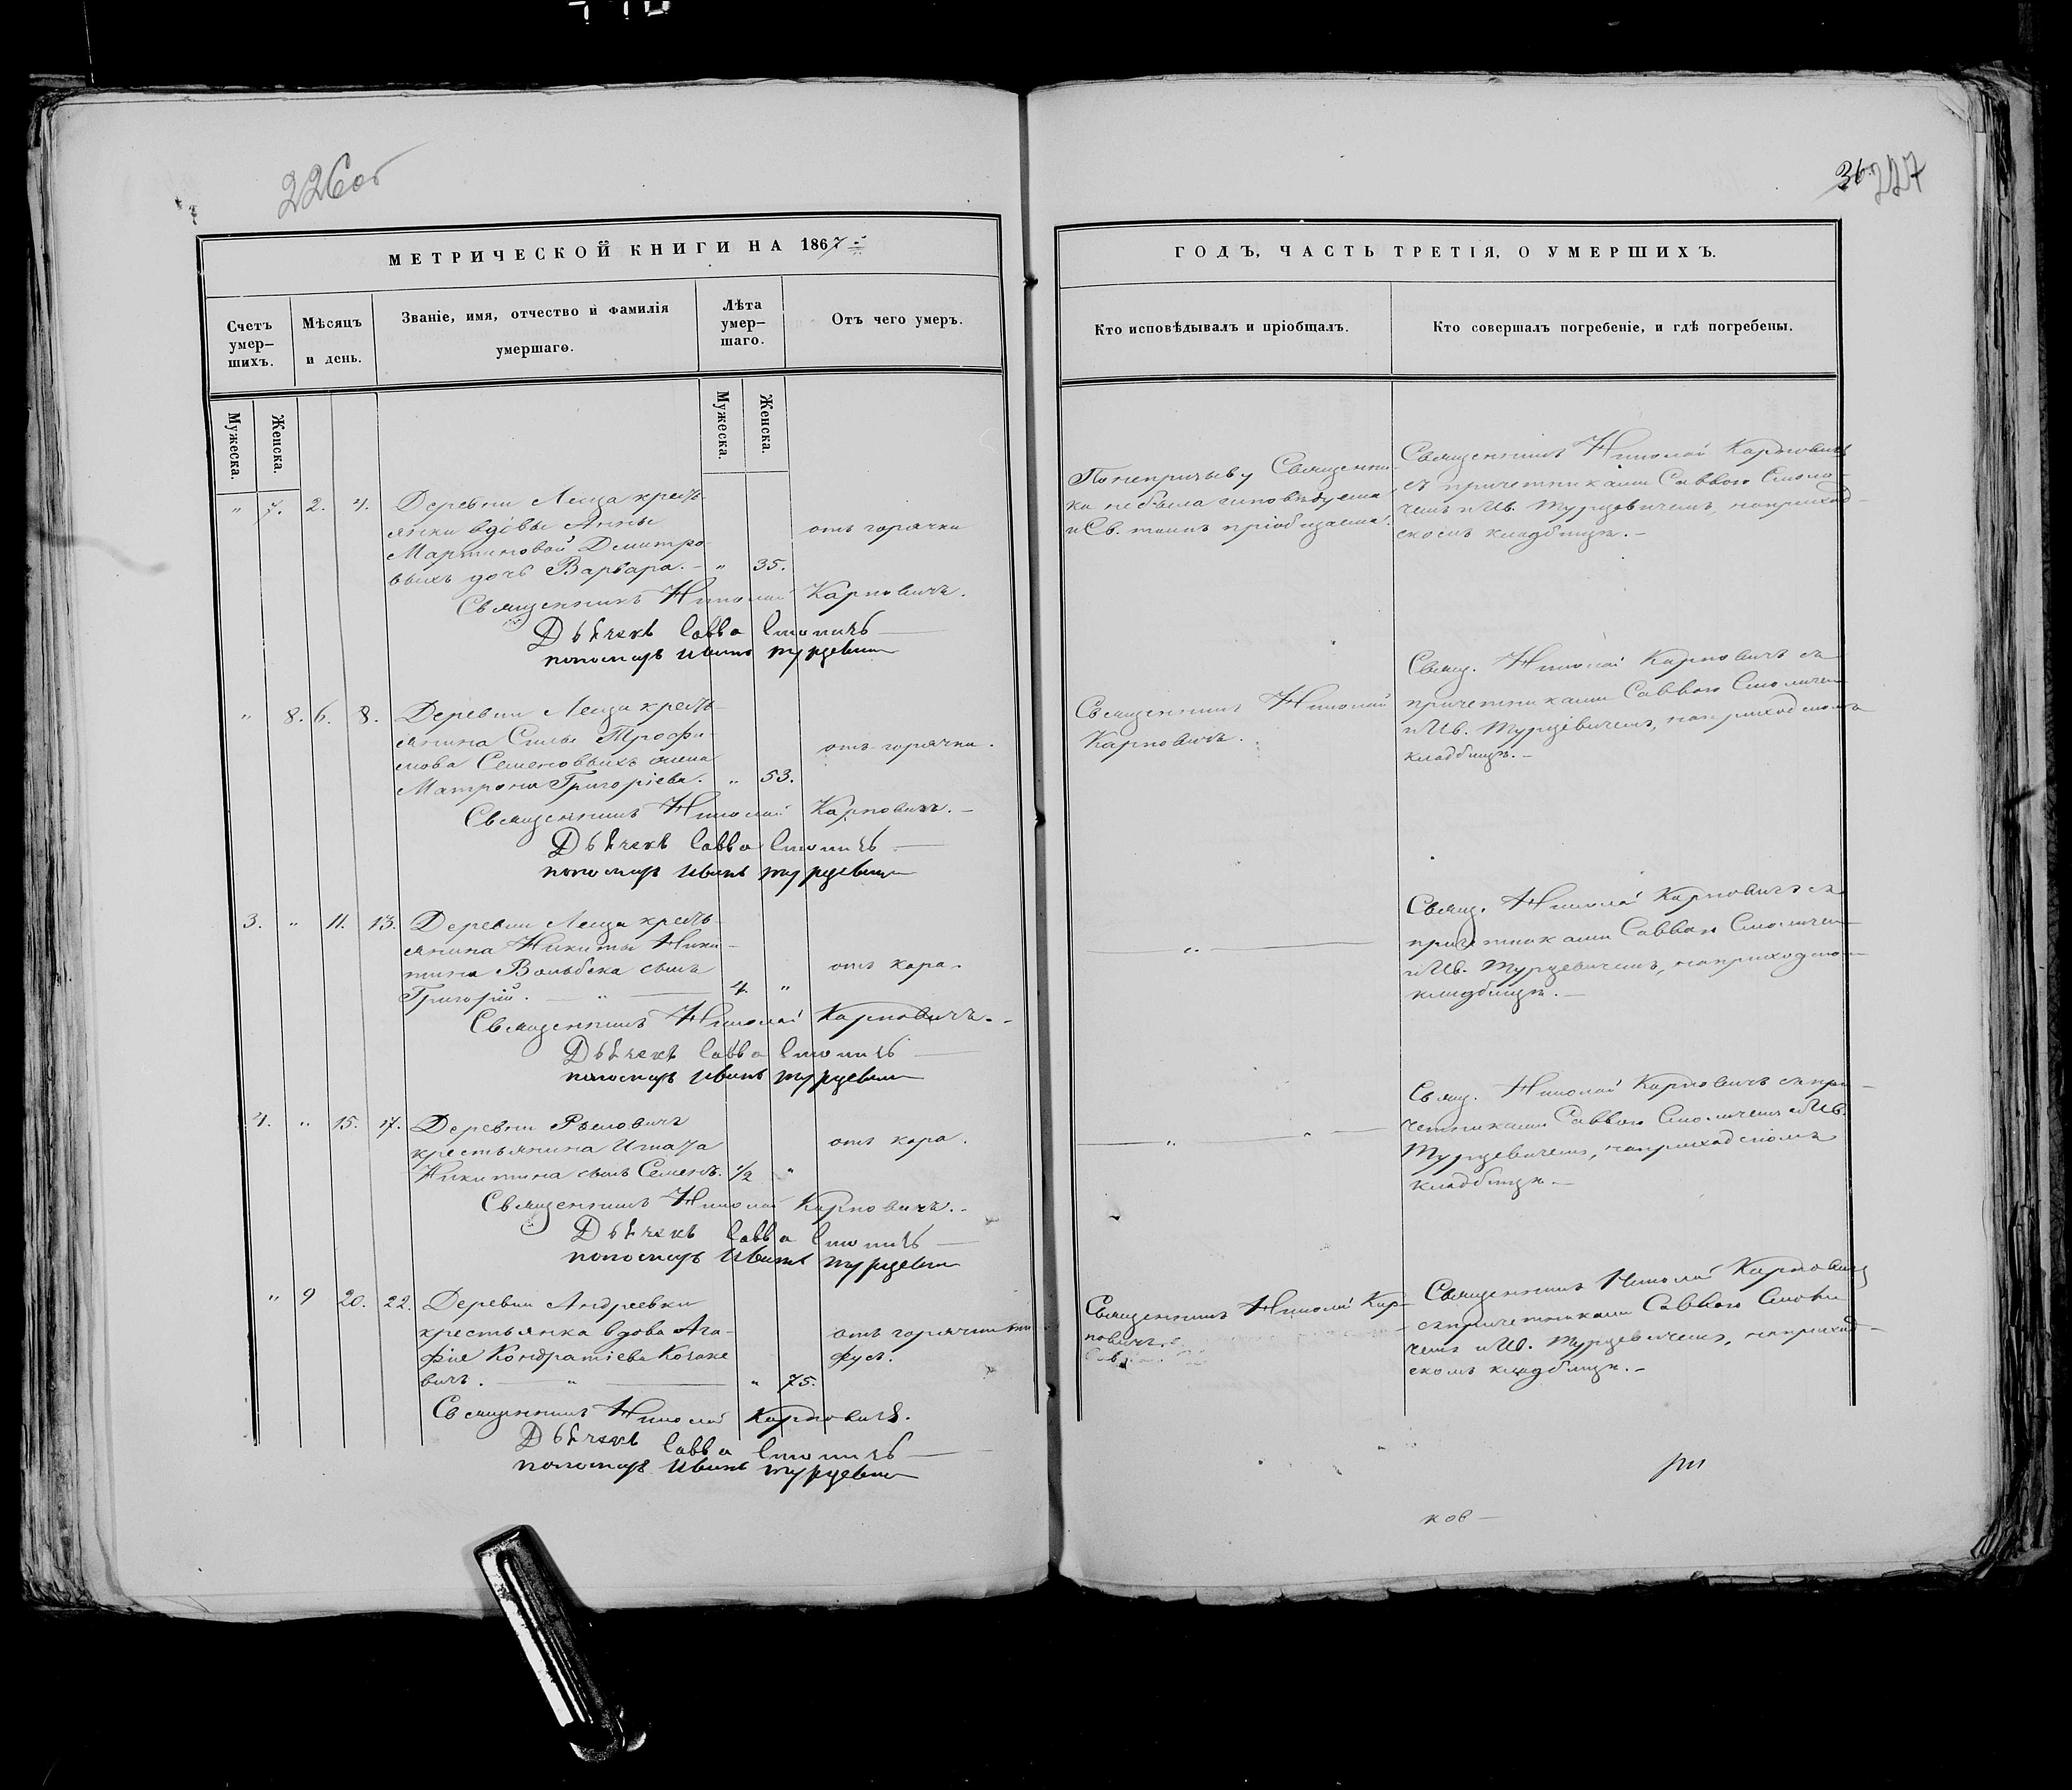 226об
36. 227
МЕТРИЧЕСКОЙ КНИГИ НА 1867
Счетъ умер-
шихъ.
Мѣсяцъ
и день.
Званіе, имя, отчество и фамилія
умершаго.
Лѣта
умер-
шаго.
Отъ чего умеръ.
Мужеска.
Женска.
Мужеска.
Женска.
" 7. 2. 4. Деревни Леща кресть-
янки вдовы Анны
Мартиновой Димитро-
выхъ дочь Варвара. - " 35.
отъ горячки
Священникъ Николай Карповичъ.
Дьячекъ Савва Смоличъ
пономарь Иванъ Турцевич
" 8. 6. 8. Деревни Леща кресть-
янина Силы Трофи-
мова Семеновыхъ жена
Матрона Григоріева. " 53.
отъ горячки.
Священникъ Николай Карповичъ. -
Дьячекъ Савва Смоличъ
пономарь Иванъ Турцевич
3. " 11. 13. Деревни Леща кресть-
янина Никиты Ники-
тина сынъ
Григорій. " 4. "
отъ кора.
Священникъ Николай Карповичъ. -
Дьячекъ Савва Смоличъ
пономарь Иванъ Турцевич
4. " 15. 17. Деревни
крестьянина Игната
Никитина сынъ Семенъ. 1/2 "
отъ кора.
Священникъ Николай Карповичъ. -
Дьячекъ Савва Смоличъ
пономарь Иванъ Турцевич
" 9 20. 22. Деревни Андреевки
крестьянка вдова Ага-
фія Кондратіева
вичъ. " " 75.
отъ горячки ти-
фуса.
Священникъ Николай Карповичъ.
Дьячекъ Савва Смоличъ
пономарь Иванъ Турцевич
ГОДЪ, ЧАСТЬ ТРЕТІЯ, О УМЕРШИХЪ.
Кто исповѣдывалъ и пріобщалъ.
Кто совершалъ погребеніе, и гдѣ погребены.
По непризыву Священни-
ка не была исповѣдуема
и Св. таинъ пріобщаема.
Священникъ Николай Карповичъ
съ причетниками Саввою Смоли-
чемъ и Ив. Турцевичемъ, на приход-
скомъ кладбищѣ. -
Священникъ Николай
Карповичъ.
Свящ. Николай Карповичъ съ
причетниками Саввою Смоличем
и Ив. Турцевичемъ, на приходскомъ
кладбищѣ. -
"
Свящ. Николай Карповичъ съ
причетниками Саввою Смоличем
и Ив. Турцевичемъ, на приходском
кладбищѣ. -
" "
Свящ. Николай Карповичъ съ при-
четниками Саввою Смоличемъ и Ив.
Турцевичемъ, на приходскомъ
кладбищѣ. -
Священникъ Николай Кар-
повичъ.
Священникъ Николай Карповичъ
съ причетниками Саввою Смоли-
чемъ и Ив. Турцевичемъ, на приход-
скомъ кладбищѣ. -
ков -